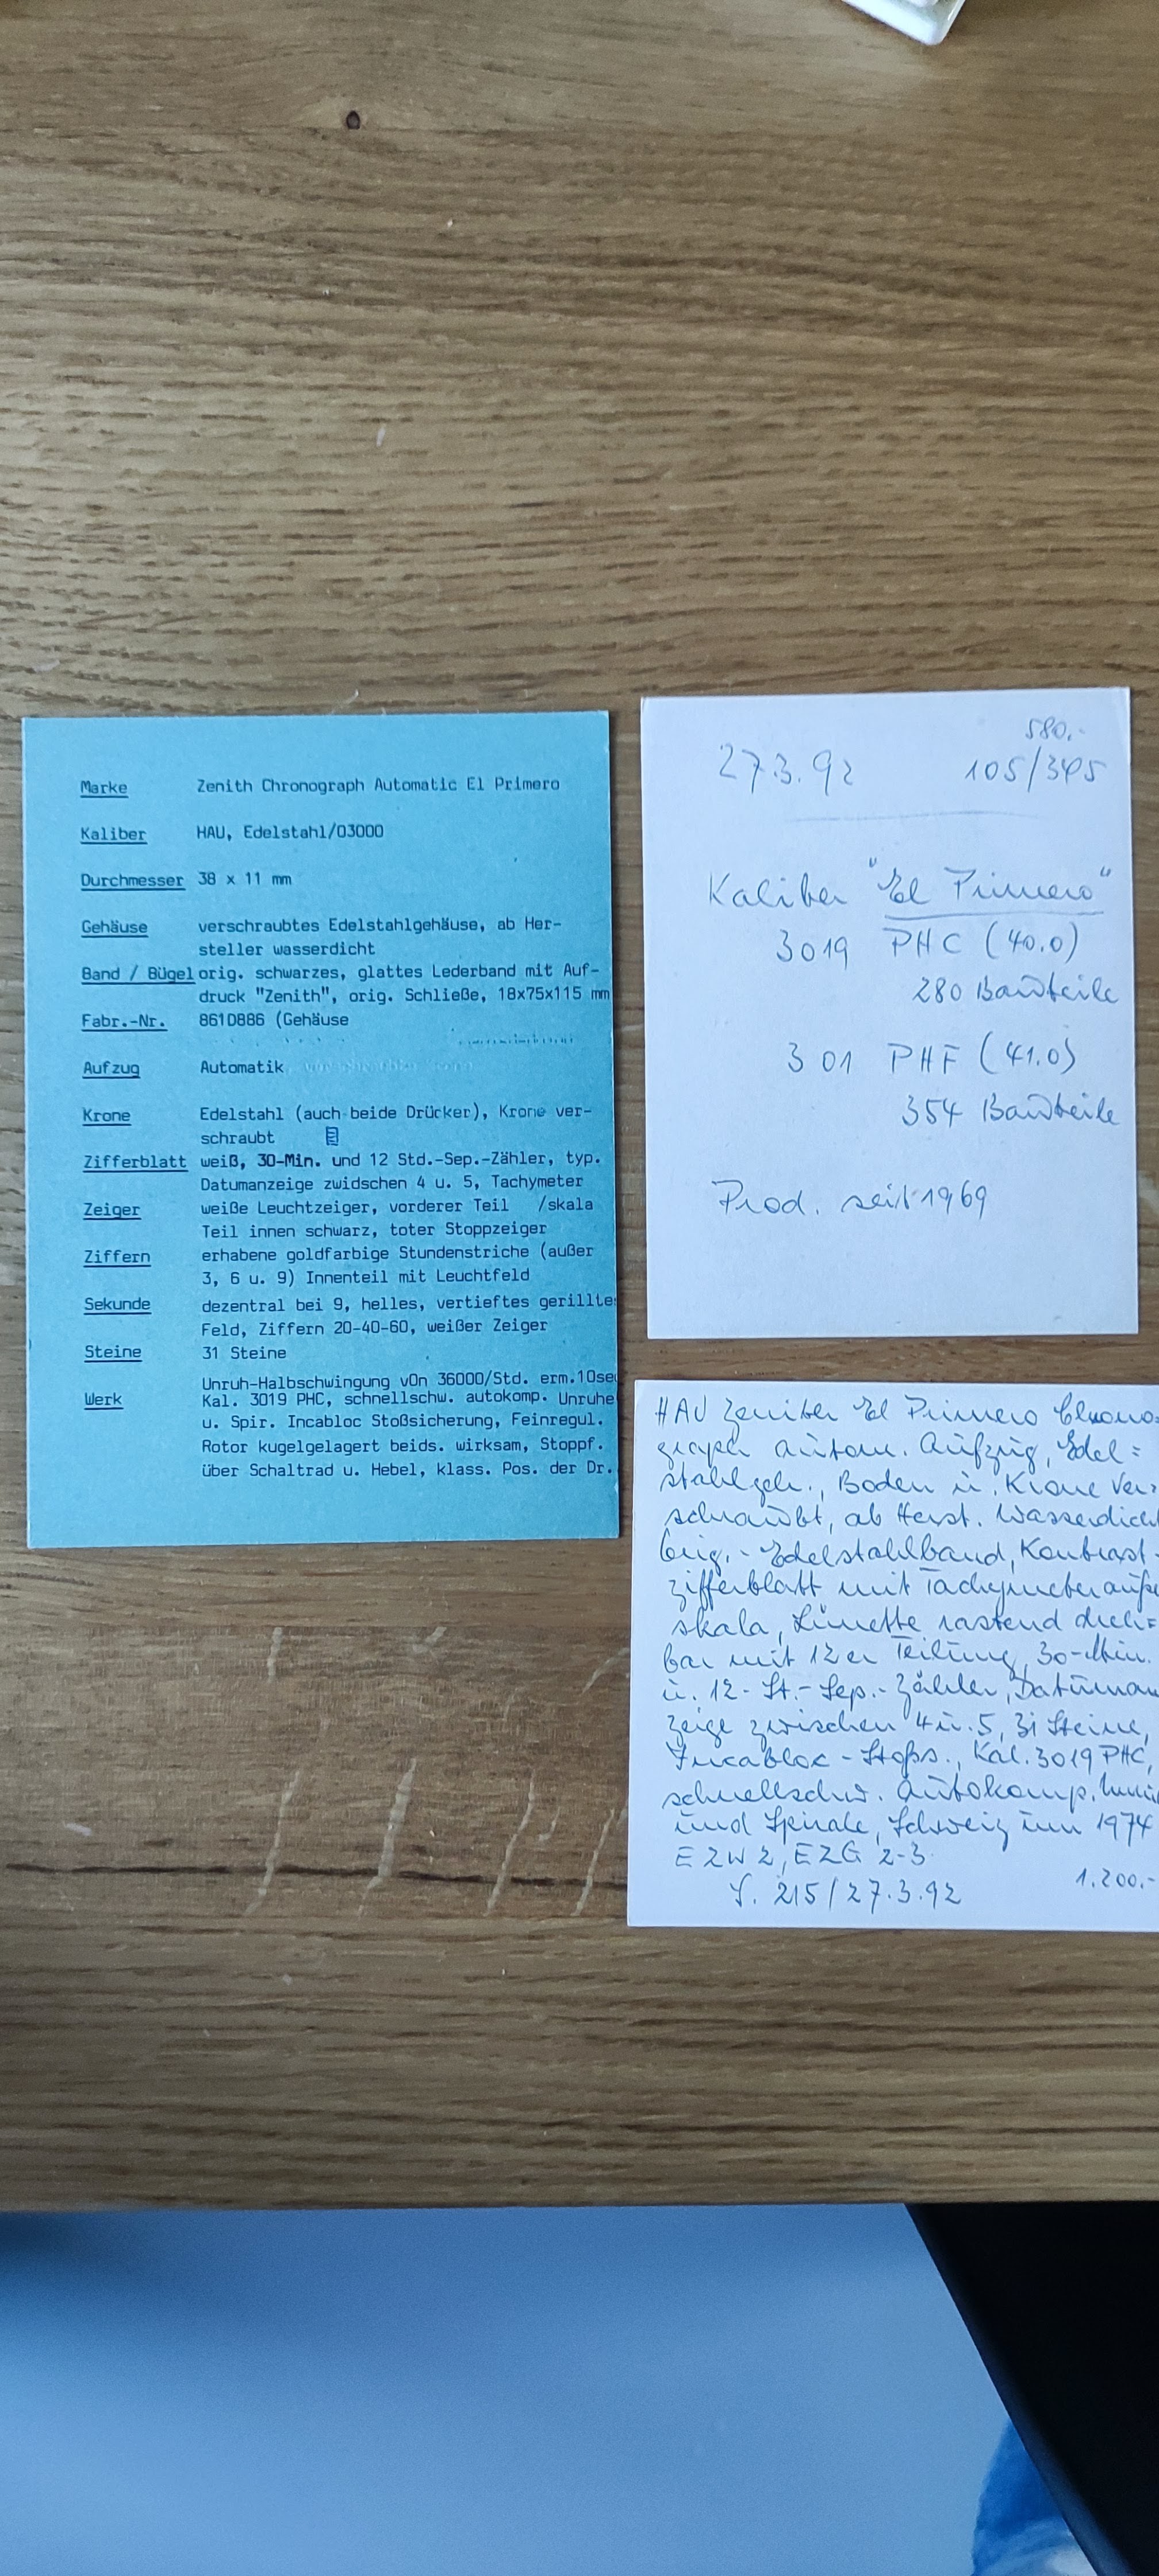 Marke Zenith Chronograph Automatic El Primero
Kaliber HAU, Edelstahl/03000
Durchmesser 38 x 11 mm
Gehäuse verschraubtes Edelstahlgehäuse, ab Her-
steller wasserdicht
Band / Bügel orig. schwarzes, glattes Lederband mit Auf-
druck "Zenith", orig. Schließe, 18x75x115 mm
Fabr.-Nr. 861D886 (Gehäuse
Aufzug Automatik
Krone Edelstahl (auch beide Drücker), Krone ver-
schraubt
Zifferblatt weiß, 30-Min. und 12 Std.-Sep.-Zähler, typ.
Datumanzeige zwidschen 4 u. 5, Tachymeter
Zeiger weiße Leuchtzeiger, vorderer Teil /skala
Teil innen schwarz, toter Stoppzeiger
Ziffern erhabene goldfarbige Stundenstriche (außer
3, 6 u. 9) Innenteil mit Leuchtfeld
Sekunde dezentral bei 9, helles, vertieftes gerilltes
Feld, Ziffern 20-40-60, weißer Zeiger
Steine 31 Steine
Unruh-Halbschwingung vOn 36000/Std. erm.10sec
Werk Kal. 3019 PHC, schnellschw. autokomp. Unruhe
u. Spir. Incabloc Stoßsicherung, Feinregul.
Rotor kugelgelagert beids. wirksam, Stoppf.
über Schaltrad u. Hebel, klass. Pos. der Dr.
580.-
27.3.92 105/345
Kaliber "El Primero"
3019 PHC (40.0)
280 Bauteile
301 PHF (41.0)
354 Bauteile
Prod. seit 1969
HAU Zeniber El Primero Chrono=
graph autom. Aufzug, Edel=
stahlgeh., Boden u. Krone ver=
schraubt, ab Herst. wasserdicht
Orig.-Edelstahlband, Kontrast-
zifferblatt mit Tachymeterauße
skala, Lünette rastend dreh=
bar mit 12er Teilung, 30-Min.
u. 12-St.-Sep.-Zähler, Datuman
zeige zwischen 4 u. 5, 31 Steine,
Incabloc-Stoßs., Kal. 3019 PHC,
schnellschw. autokomp.
und Spirale, Schweiz um 1974
EZW 2, EZG 2-3
1.200.-
Y. 215/27.3.92